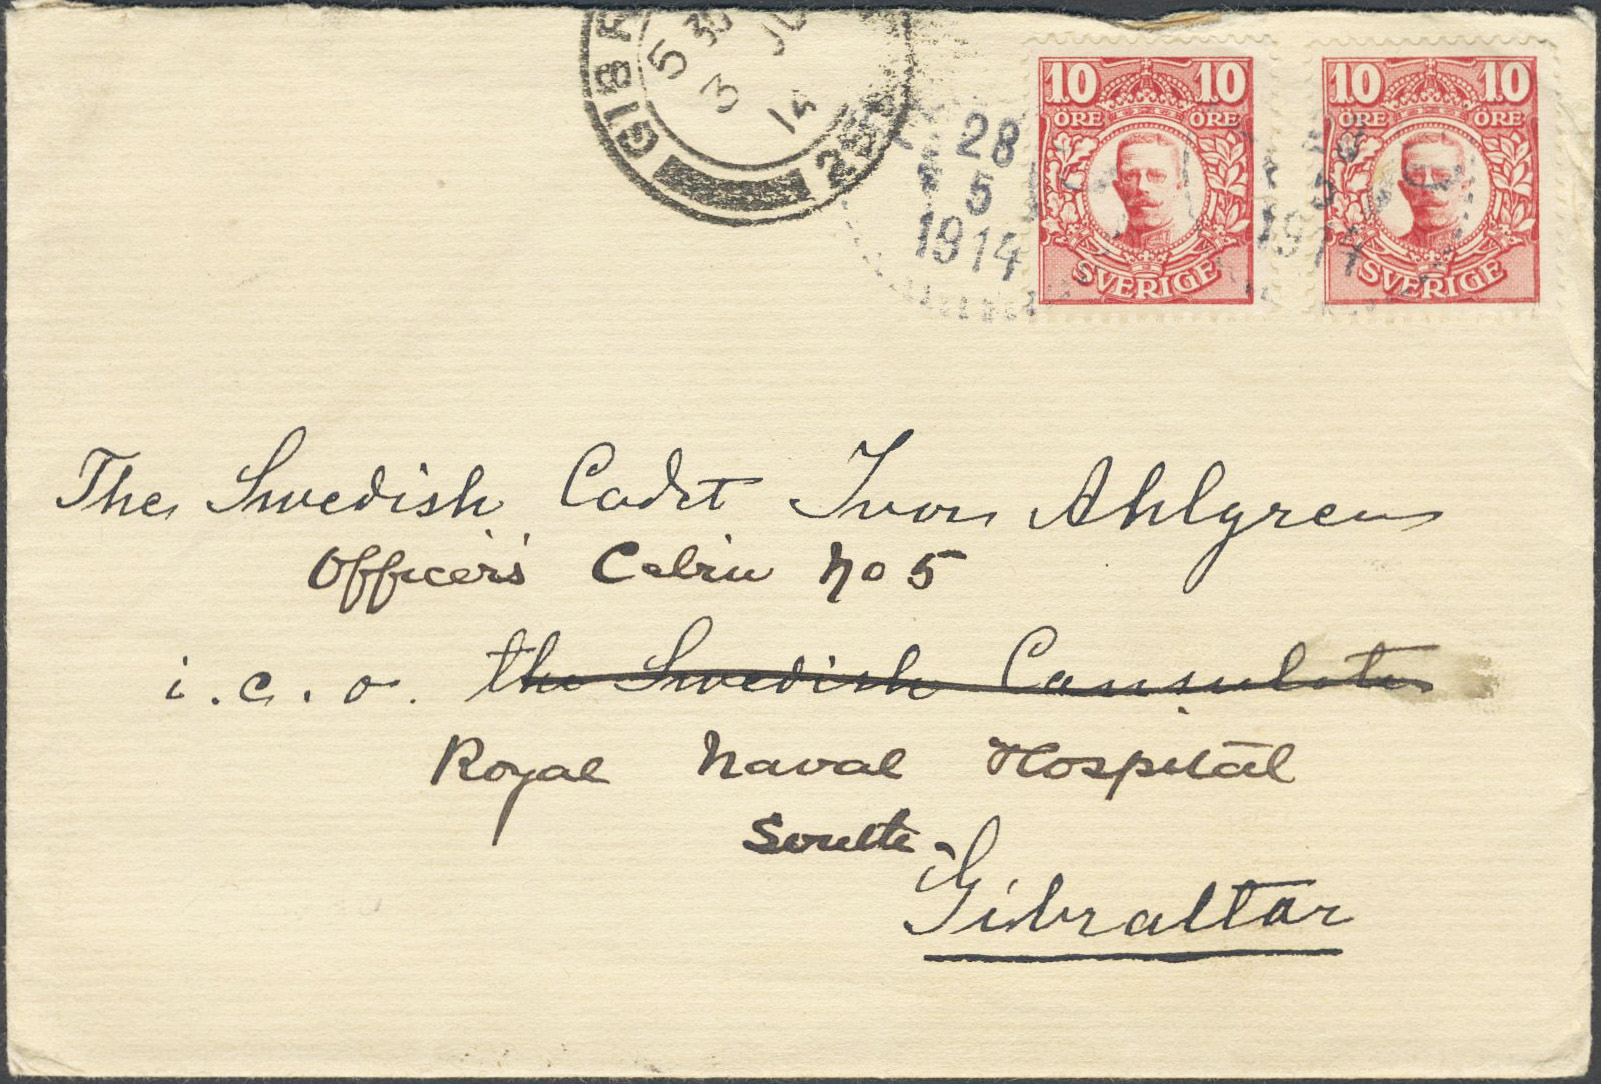 GIBR
5 30
3 JU
14
25
28
5
1914
10 10
ÖRE ÖRE
SVERIGE
5
1914
10 10
ÖRE ÖRE
SVERIGE
The Swedish Cadet Ivon Ahlgren
Officer's Cabin No 5
i.c.o. the Swedish Consulate
Royal Naval Hospital
South -
Gibraltar